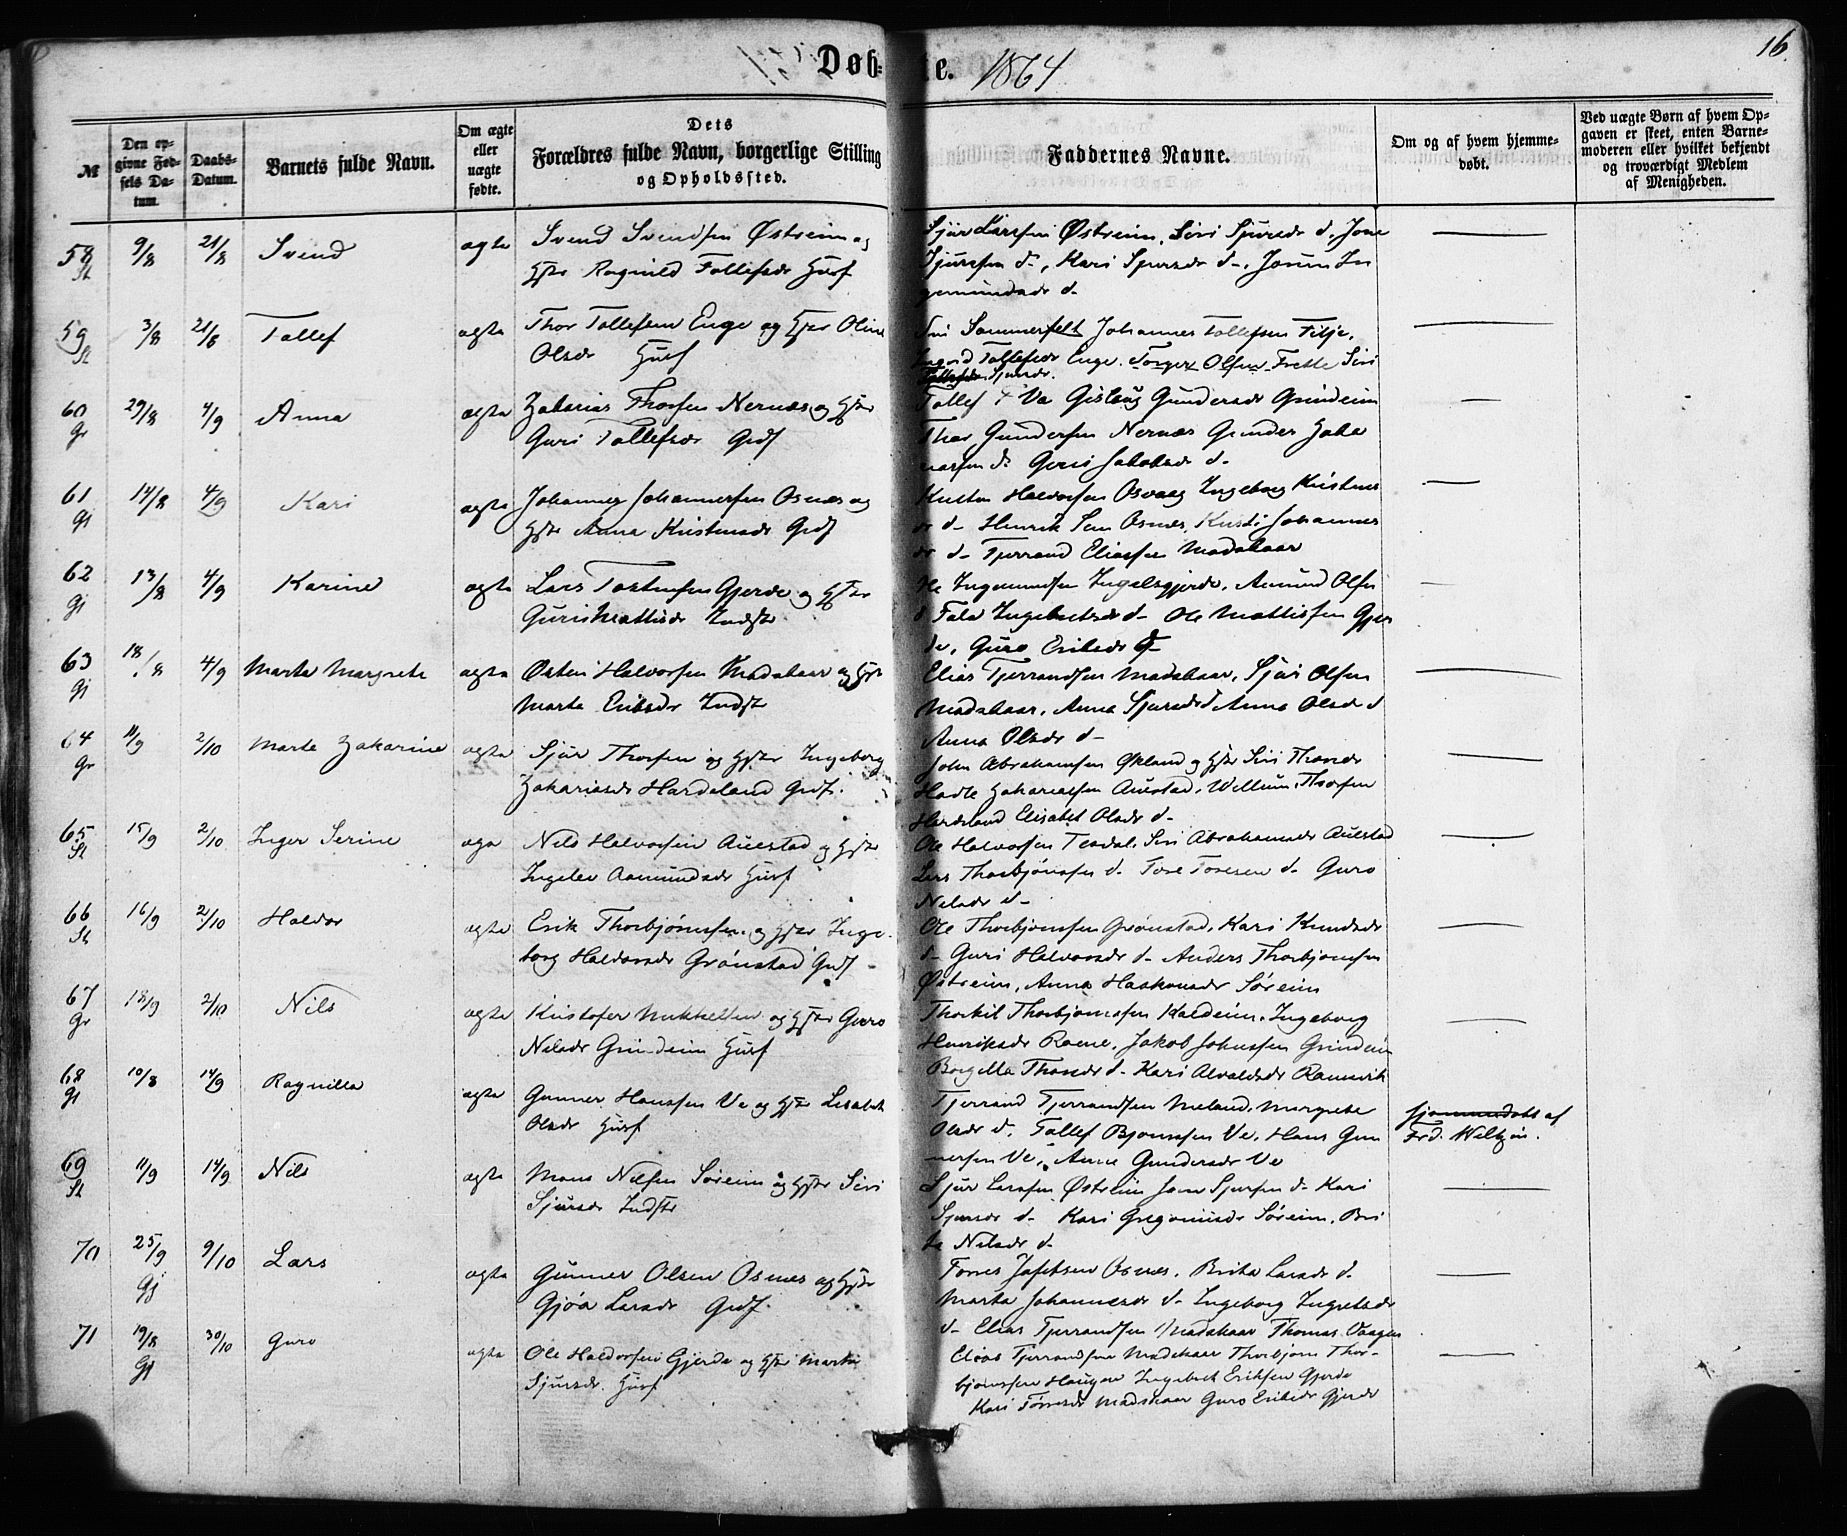 Døb- e. 1864
16.
№
Den op-
givne Fød-
sels Da-
tum.
Daabs-
Datum.
Barnets fulde Navn.
Om ægte
eller
uægte
fødte.
Dets
Forældres fulde Navn, borgerlige Stilling
og Opholdssted.
Faddernes Navne.
Om og af hvem hjemme-
døbt.
Ved uægte Børn af hvem Op-
gaven er skeet, enten Barne-
moderen eller hvilket bekjendt
og troværdigt Medlem
af Menigheden.
58 9/8 21/8 Svend ægte Svend Svendsen Østreim og
Hstr Ragnild Tollefsdr Husf
Sjur Larssen Østreim, Siri Sjursdr d. Jone
Sjurssen d-, Kari Sjursdr d-, In
gemundsdr d-
59 3/8 21/8 Tollef ægte Thor Tollefsen Enge og Hstr Oline
Olsdr Husf
Sommerfelt Johannes Tollefsen
Tollefsdr Enge. Torger Olsen Frette Siri
Sjursdr.
60 Gr 29/8 4/9 Anna ægte Zakarias Thorsen Nernæs og Hstr
Guri Tollefsdr Grdf
Tollef Va Gislaug Gundersdr Grindeim
Thor Gundersen Nernæs Gunder Zaka
riassen d- Guri Jakobsdr d-
61 Gj 14/8 4/9 Kari ægte Johannes Johannessen Osnæs og
Hstr Anna Kristensdr Grdf
Halvorsen Osvaag Ingeborg Kristens
dr d- Henrik Osnæs, Johannes
dr d- Tjerrand Eliassen Madskaar
62 Gj 13/8 4/9 Karine ægte Lars Tostensen Gjerde og Hstr
Guri Mattisdr Indst
Ole Ingemundsen Ingelsgjerde, Amund Olsen
Ingebretsdr d- Ole Mattissen Gjer
de, Guro Eriksdr d-
63 Gj 18/8 4/9 Marta Margrete ægte Østen Halvorsen Madskaar og Hstr
Marta Eriksdr Indst
Elias Tjerrandsen Madskaar, Sjur Olsen
Madskaar, Anna Sjursdr d Anna Olsdr d
Anna Olsdr d-
64 Gr 11/9 2/10 Marte Zakarine ægte Sjur Thorsen og Hstr Ingeborg
Zakariasdr Hardeland Grdf.
John Abrahamsen Økland og Hstr Siri Thorsdr
Zakariassen Austad, Thorsen
Hardeland Elisabet Olsdr d-
65 15/9 2/10 Inger Serine Nils Halvorsen Austad og Hstr
Aamundsdr Husf
Ole Halvorsen Teadal, Siri Abrahamsdr Austad
Lars Thorbjørnsen d- Tore Toresen d- Guro
Nilsdr d-
66 16/9 2/10 Haldor ægte Erik Thorbjørnsen og Hstr Inge-
borg Haldorsdr Grønstad Grdf -
Ole Thorbjørnsen Grønstad, Kari Knudsdr
d- Guri Halvorsdr d- Anders Thorbjørnsen
Østreim, Anna Haakonsdr Søreim
67 Gr 18/9 2/10 Nils ægte Kristofer Mikkelsen og Hstr Guro
Nilsdr Grindeim Husf
Thorkil Thorbjørnsen Kaldeim, Ingeborg
Henriksdr Rame, Jakob Johnssen Grindeim
Borgilla Thorsdr d- Kari Alvaldsdr Ramsvik
68 Gj 10/8 14/9 Ragnilla ægte Gunner Hanssen Ve og Hstr Lisabet
Olsdr Husf
Tjerrand Tjerrandsen Meland, Margrete
Olsdr d. Tollef Bjørnsen Ve, Hans Gun
nersen Ve, Anne Gundersdr Ve
Hjemmedøbt af
Frd.
69 11/9 14/9 Nils ægte Mons Nilsen Søreim og Hstr Siri
Sjursdr Indst
Sjur Larssen Østreim Jone Sjursen d- Kari
Sjursdr d- Kari Gregoriusdr Søreim, Bri
ta Nilsdr d-
70 25/9 9/10 Lars ægte Gunner Olsen Osnæs og Hstr
Gj Gjøa Larsdr Grdf.
Torres Josefsen Osnæs, Brita Larsdr d.
Marta Johannesdr d- Ingeborg
d- Elias Tjerrandsen Madskaar Thomas Vaagen
71 19/8 30/10 Guro ægte Ole Haldorsen Gjerde og Hstr Marta
Gj Sjursdr Husf
Elias Tjerrandsen Madskaar Thorbjørn Thor-
bjørnssen Haugen Ingebret Eriksen Gjerde
Kari Torresdr Madskaar Guro Eriksdr Gjerde